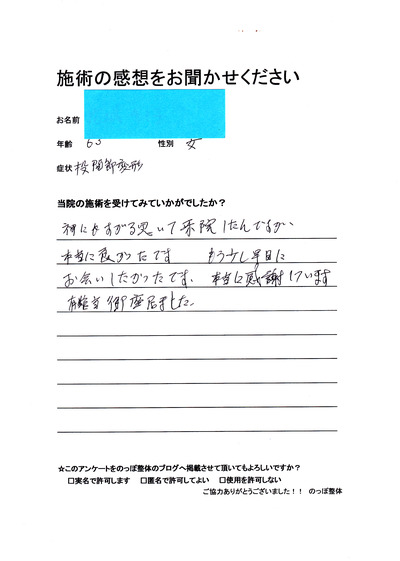 施術の感想をお聞かせください
お名前
年齢 63 性別 女
症状 股関節変形
当院の施術を受けてみていかがでしたか？
神にもすがる思いで来院したんですが、
本当に良かったです もう少し早目に
お会いしたかったです。本当に感謝しています
有難う御座居ました。
☆このアンケートをのっぽ整体のブログへ掲載させて頂いてもよろしいですか？
□実名で許可します □匿名で許可してよい □使用を許可しない
ご協力ありがとうございました！！ のっぽ整体